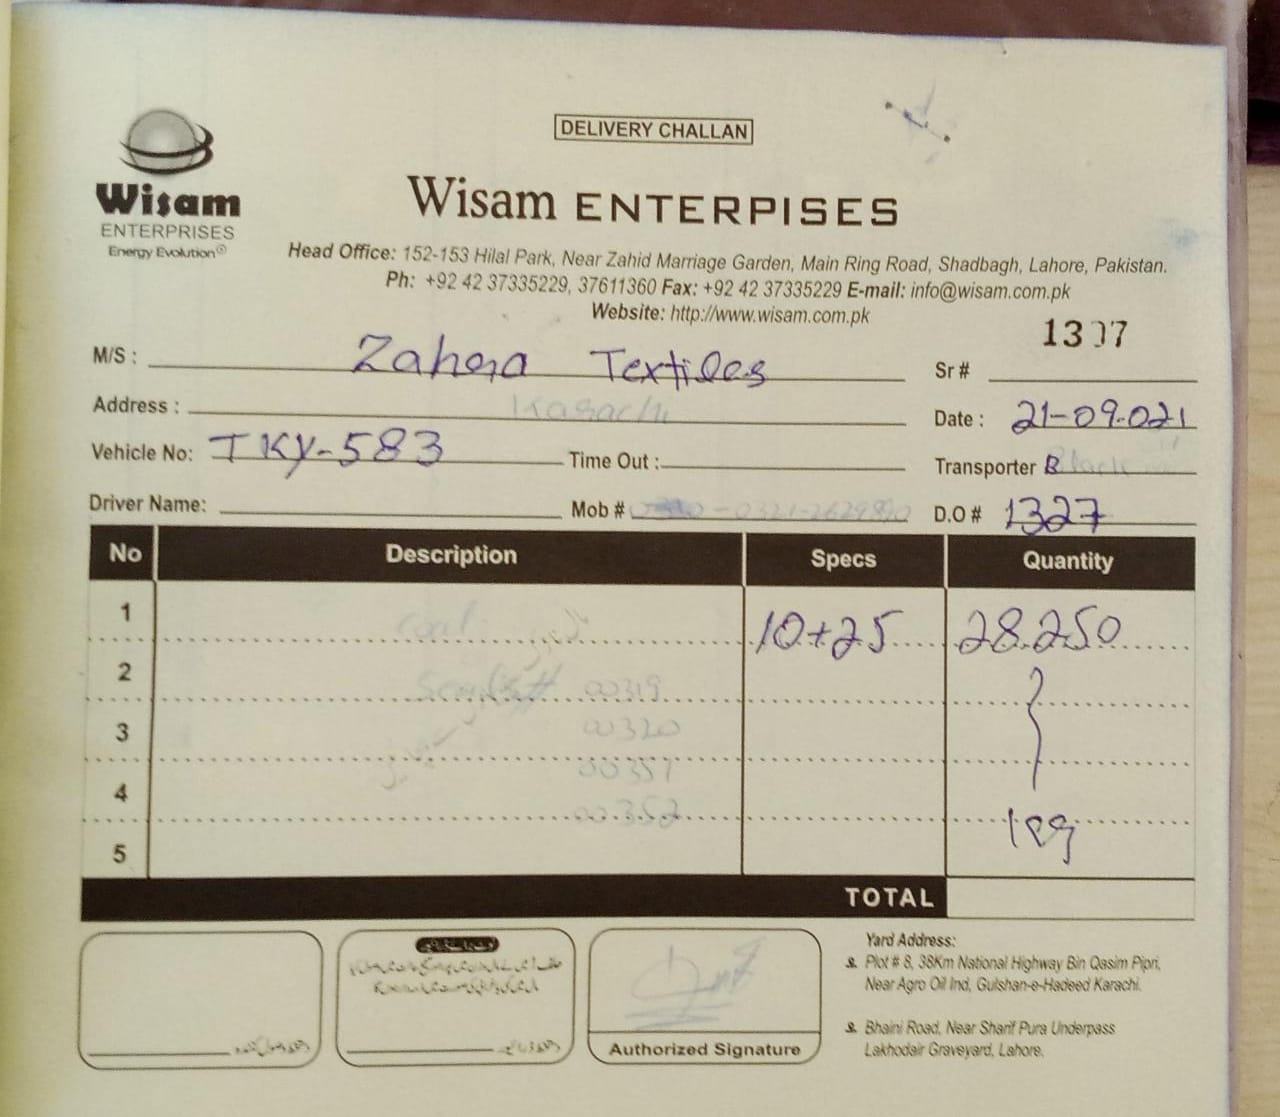 DELIVERY CHALLAN
Wisam
ENTERPRISES
Energy Evolution
Wisam ENTERPISES
Head Office: 152-153 Hilal Park, Near Zahid Marriage Garden, Main Ring Road, Shadbagh, Lahore, Pakistan.
Ph: +92 42 37335229, 37611360 Fax: +92 42 37335229 E-mail: info@wisam.com.pk
Website: http://www.wisam.com.pk
M/S : Zahra Textiles
Sr #
Address : Karachi
Date : 21-09-021
Vehicle No: TKY-583 Time Out :
Transporter
Driver Name: Mob #
D.O # 1327
No Description Specs Quantity
1 Coal 10+25 28.250
2 00319
3 00320
00351
4
00352
5
TOTAL
Authorized Signature
Yard Address:
Plot # 8, 38Km National Highway Bin Qasim Pipri,
Near Agro Oil Ind, Gulshan-e-Hadeed Karachi.
Bhaini Road, Near Sharif Pura Underpass
Lakhodair Graveyard, Lahore.